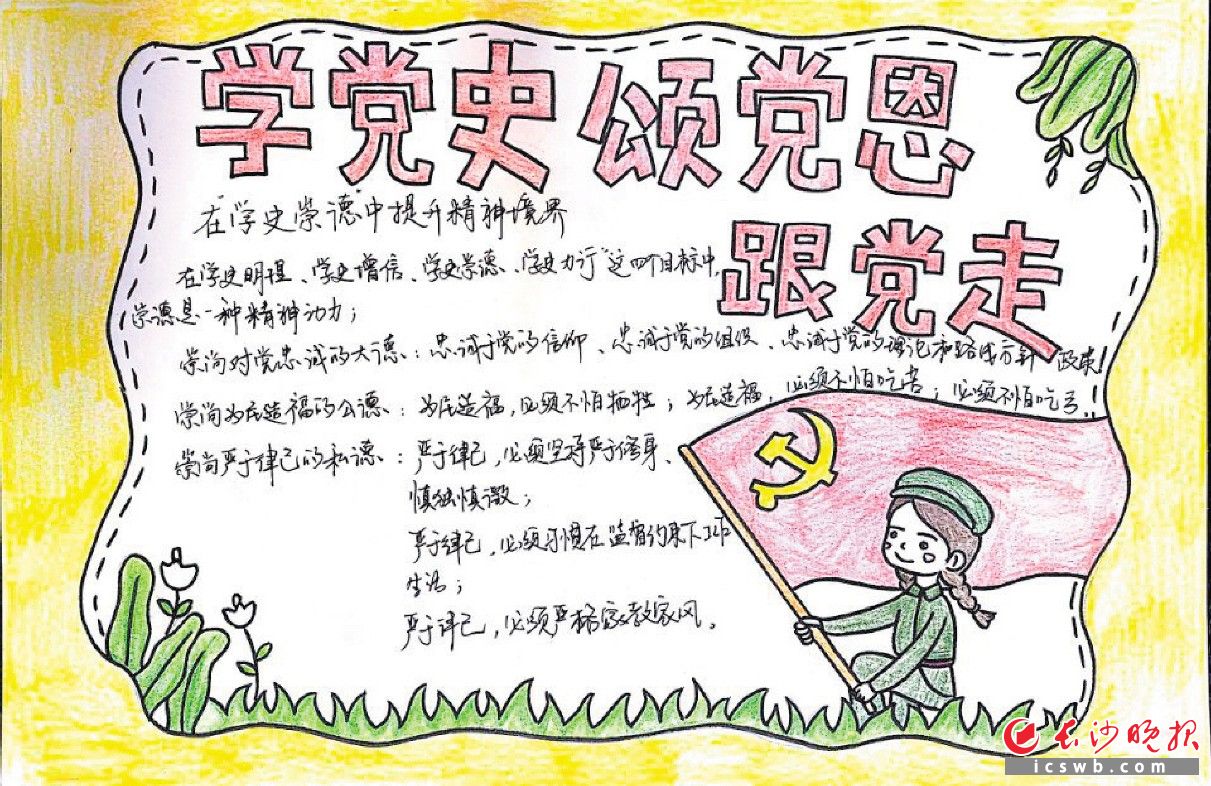 学党史 颂党恩
跟党走
在学史崇德中提升精神境界
在学史明理、学史增信、学史崇德、学史力行”这四个目标中,
崇德是一种精神动力;
崇尚对党忠诚的大德:忠诚于党的信仰、忠诚于党的组织、忠诚于党的理论和路线方针、政策!
崇尚为民造福的公德:为民造福,必须不怕牺牲;为民造福,必须不怕吃苦;必须不怕吃亏。
崇尚严于律己的私德:严于律己,必须坚持严于修身、
慎独慎微;
严于律己,必须习惯在监督约束下工作
生活;
严于律己,必须严格家教家风。
长沙晚报
icswb.com